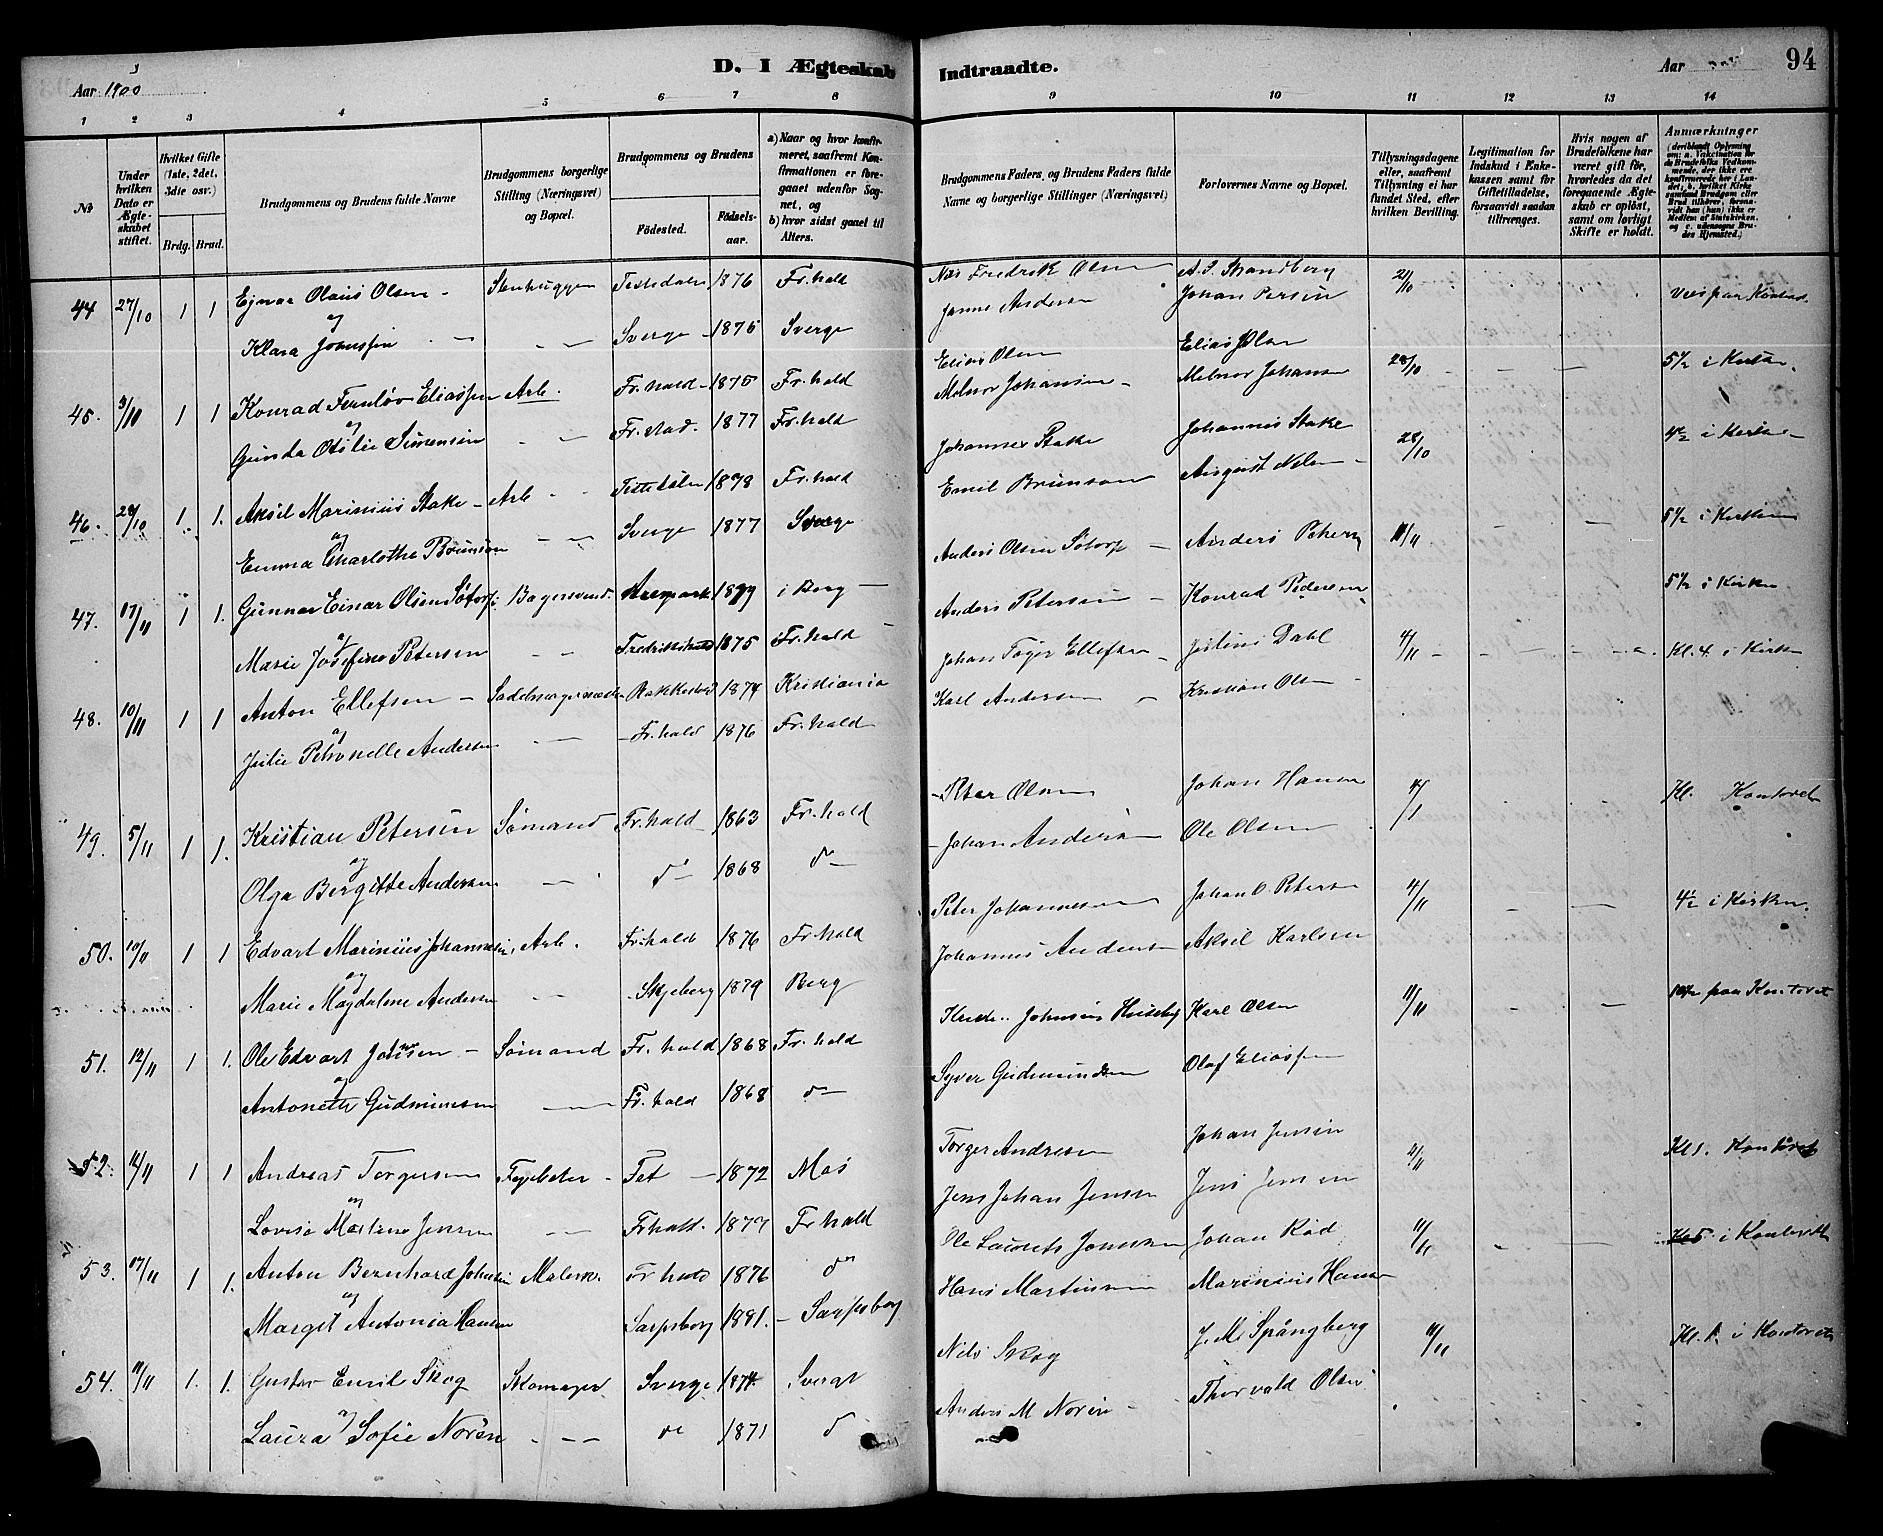 D. I Ægteskab Indtraadte.
Aar 1900
Aar 94
1 2 3 4 5 6 7 8 9 10 11 12 13 14
№
Under hvilken Dato er Ægteskabet stiftet.
Hvilket Gifte (1ste, 2det, 3die osv.)
Brdg. Brud.
Brudgommens og Brudens fulde Navne
Brudgommens borgerlige Stilling (Næringsvei) og Bopæl.
Brudgommens og Brudens
Fødested.
Fødselsaar.
a) Naar og hvor konfirmeret, saafremt Konfirmationen er foregaaet udenfor Sognet, og
b) hvor sidst gaaet til Alters.
Brudgommens Faders, og Brudens Faders fulde Navne og borgerlige Stillinger (Næringsvei)
Forlovernes Navne og Bopæl.
Tillysningsdagene eller, saafremt Tillysning ei har fundet Sted, efter hvilken Bevilling.
Legitimation for Indskud i Enkekassen samt for Giftetilladelse, forsaavidt saadan tiltrænges.
Hvis nogen af Brudefolkene har været gift før, hvorledes da det foregaaende Ægteskab er opløst, samt om lovligt Skifte er holdt.
Anmærkninger
(deriblandt Oplysning om: a. Vakcination for de Brudefolks Vedkommende, der ikke ere konfirmerede her i Landet; b. hvilket Kirkesamfund Brudgom eller Brud tilhører, forsaavidt han (hun) ikke er Medlem af Statskirken, og c. udensogns Brudes Hjemsted.)
44 27/10 1 1 Ejnar Olaus Olsen - Stenhugger Tistedalen 1876 Fr.hald Fredrik Olsen A. S. Strandberg 21/10
og
Klara Johansen - - Sverge 1875 Sverge Janne Andersen Johan Persen
45. 3/11 1 1 Konrad Fernløv Eliassen Arb. Fr.hald 1875 Fr.hald Elias Olsen Elias Olsen 28/10 5½ i Kirken.
og
Gunda Otilie Simensen - - Fr.stad. 1877 Fr.hald Melnor Johansen - Melnor Johansen
46. 28/10 1. 1. Aksel Marinius Stake - Arb. Tistedalen 1878 Fr.hald Johannes Stake Johannes Stake 28/10 4½ i Kirken
og
Emma Charlotha Brunson - - Sverge 1877 Sverge Emil Brunson August Nilsen -
47. 17/11 1 1. Gunnar Einar Olsen Søtorp Bagersvend. Aremark 1877 i Berg Anders Olsen Søtorp - Anders Petersen 11/11 5½ i Kirken
og
Marie Josefine Petersen - - Fredrikshald 1875 Fr.hald Anders Petersen - Konrad Pedersen 5½ i Kirken
48. 10/11 1 1 Anton Ellefsen - Sadelmagermester Rakkestad 1874 Kristiania Johan Tøger Ellefsen Julius Dahl 4/11 Kl. 4. i Kirken
og
Julie Petronelle Andersen - Fr.hald 1876 Fr.hald Karl Andersen Kristian Olsen
49. 5/11 1 1. Kristian Petersen Sømand Fr.hald 1863 Fr.hald Peter Olsen Johan Hansen Kl. Kontoret
og
Olga Bergitte Andersen - do 1868 do - Johan Andersen Ole Olsen
50. 10/11 1 1 Edvart Marinius Johannesen, Arb. Fr.hald 1876 Fr.hald Peter Johannesen Johan O. Petersen 4/11 4½ i Kirken.
og
Marie Magdalene Andersen - - Skjeberg 1879 Berg Johannes Andersen Aksel Karlsen
51. 12/11 1 1. Ole Edvart Johnsen - Sømand Fr.hald 1868 Fr.hald Johnsen Huseby Karl Olsen 11/11 10½ paa Kontoret
og
Antonette Gudmunsen - Fr.hald 1868 do - Syver Gudmundsen Olaf Eliassen
52. 1 1 Andreas Torgersen Fyrbøter - Fet - 1872 Mos Torger Andresen Johan Jensen Kl 1. Kontoret
og
Lovise Martine Jensen - - Fr.hald. 1877 Fr.hald Jens Johan Jensen Jens Jensen
53. 17/11 1 1. Anton Bernhard Johnsen Malersv. Fr.hald 1876 do Ole Laurets Jonsen Johan Rød 11/11 Kl 5 i Kontoret
og
Margit Antonia Hansen Sarpsborg 1881. - Sarpsborg Hans Martinsen Marinius Hansen
54. 11/11 1. 1. Gustav Emil Skog Skomager Sverge 1874 Sverge Nils Skog J. M. Spångberg 11/11 Kl. 1. i Kontoret
og
Laura Sofie Norén - - - do 1871 do Anders M Norén - Thorvald Olsen